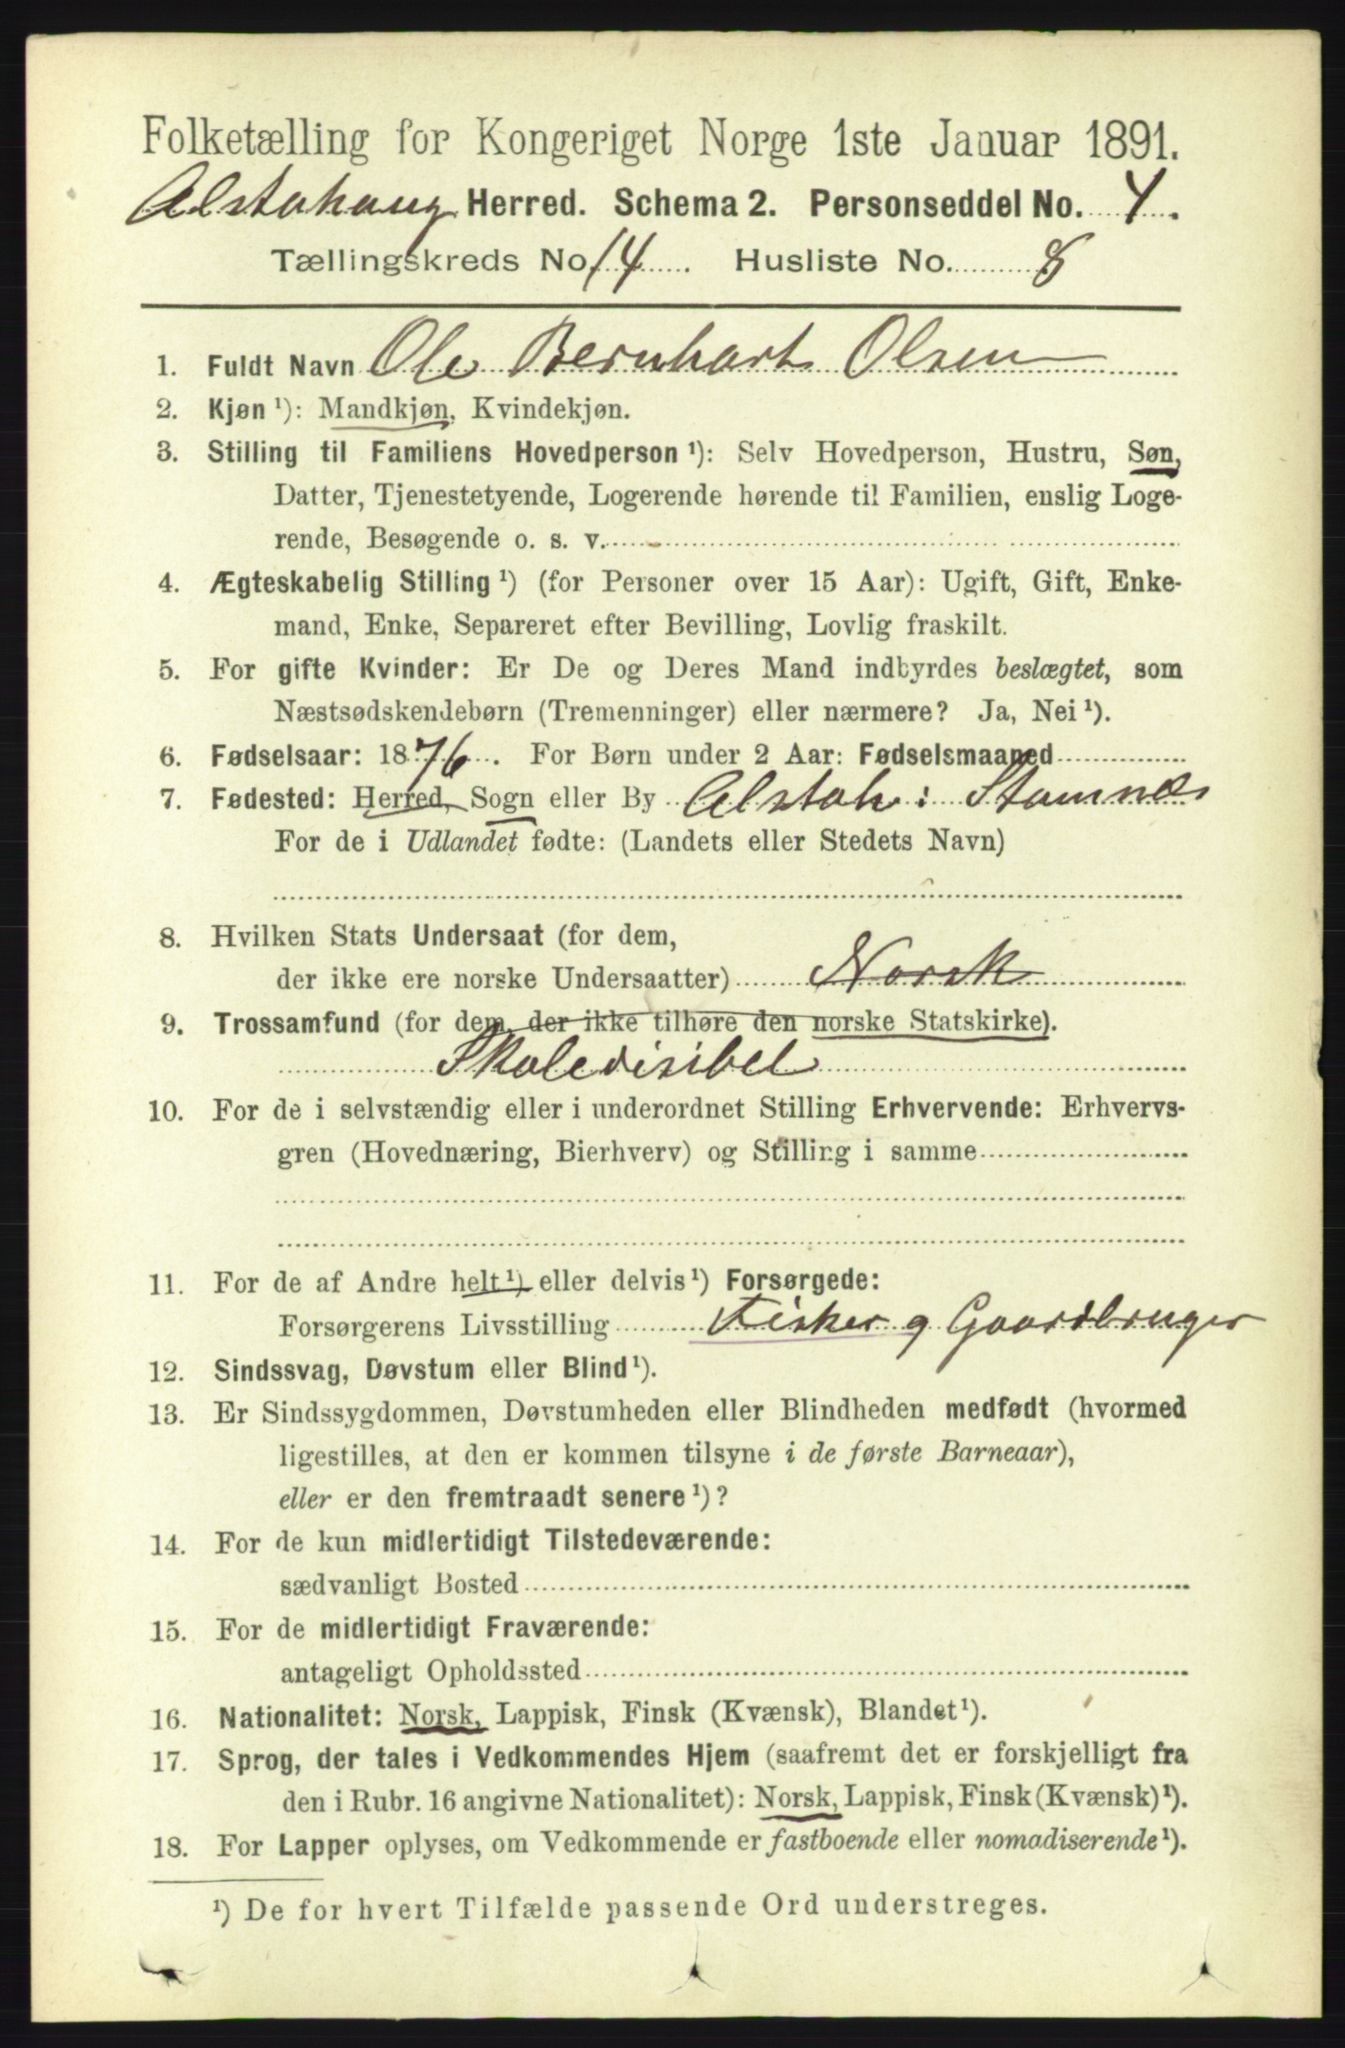 Folketælling for Kongeriget Norge 1ste Januar 1891.
Alstahaug Herred. Schema 2. Personseddel No. 4.
Tællingskreds No 14. Husliste No. 8
1. Fuldt Navn Ole Bernhart Olsen
2. Kjøn ¹): Mandkjøn, Kvindekjøn.
3. Stilling til Familiens Hovedperson ¹): Selv Hovedperson, Hustru, Søn,
Datter, Tjenestetyende, Logerende hørende til Familien, enslig Loge-
rende, Besøgende o. s. v.
4. Ægteskabelig Stilling ¹) (for Personer over 15 Aar): Ugift, Gift, Enke-
mand, Enke, Separeret efter Bevilling, Lovlig fraskilt.
5. For gifte Kvinder: Er De og Deres Mand indbyrdes beslægtet, som
Næstsødskendebørn (Tremenninger) eller nærmere? Ja, Nei ¹).
6. Fødselsaar: 1876. For Børn under 2 Aar: Fødselsmaaned
7. Fødested: Herred, Sogn eller By Alstah: Stamnes
For de i Udlandet fødte: (Landets eller Stedets Navn)
8. Hvilken Stats Undersaat (for dem,
der ikke ere norske Undersaatter) Norsk
9. Trossamfund (for dem, der ikke tilhøre den norske Statskirke).
Skoledisibel
10. For de i selvstændig eller i underordnet Stilling Erhvervende: Erhvervs-
gren (Hovednæring, Bierhverv) og Stilling i samme
11. For de af Andre helt ¹) eller delvis ¹) Forsørgede:
Forsørgerens Livsstilling Fisker og Gaardbruger
12. Sindssvag, Døvstum eller Blind ¹).
13. Er Sindssygdommen, Døvstumheden eller Blindheden medfødt (hvormed
ligestilles, at den er kommen tilsyne i de første Barneaar),
eller er den fremtraadt senere ¹)?
14. For de kun midlertidigt Tilstedeværende:
sædvanligt Bosted
15. For de midlertidigt Fraværende:
antageligt Opholdssted
16. Nationalitet: Norsk, Lappisk, Finsk (Kvænsk), Blandet ¹).
17. Sprog, der tales i Vedkommendes Hjem (saafremt det er forskjelligt fra
den i Rubr. 16 angivne Nationalitet): Norsk, Lappisk, Finsk (Kvænsk) ¹).
18. For Lapper oplyses, om Vedkommende er fastboende eller nomadiserende ¹).
¹) De for hvert Tilfælde passende Ord understreges.